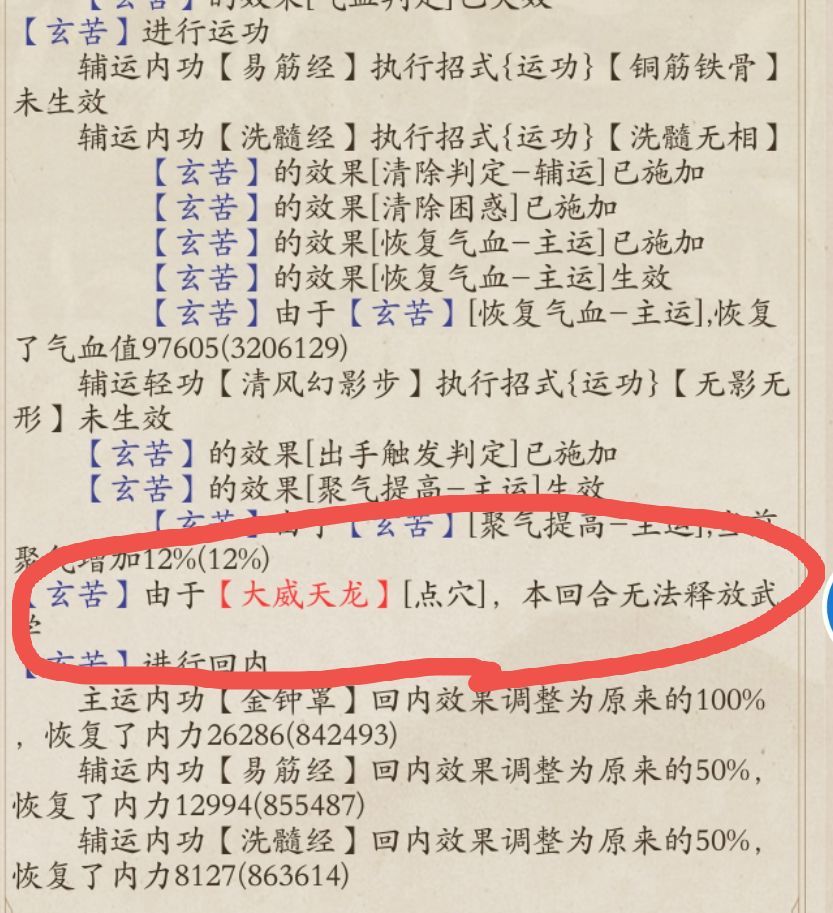 【玄苦】的效果[气血判定]已失效
【玄苦】进行运功
辅运内功【易筋经】执行招式{运功}【铜筋铁骨】
未生效
辅运内功【洗髓经】执行招式{运功}【洗髓无相】
【玄苦】的效果[清除判定-辅运]已施加
【玄苦】的效果[清除困惑]已施加
【玄苦】的效果[恢复气血-主运]已施加
【玄苦】的效果[恢复气血-主运]生效
【玄苦】由于【玄苦】[恢复气血-主运],恢复
了气血值97605(3206129)
辅运轻功【清风幻影步】执行招式{运功}【无影无
形】未生效
【玄苦】的效果[出手触发判定]已施加
【玄苦】的效果[聚气提高-主运]生效
【玄苦】由于【玄苦】[聚气提高-主运],当前
聚气增加12%(12%)
【玄苦】由于【大威天龙】[点穴]，本回合无法释放武
学
【玄苦】进行回内
主运内功【金钟罩】回内效果调整为原来的100%
，恢复了内力26286(842493)
辅运内功【易筋经】回内效果调整为原来的50%，
恢复了内力12994(855487)
辅运内功【洗髓经】回内效果调整为原来的50%，
恢复了内力8127(863614)